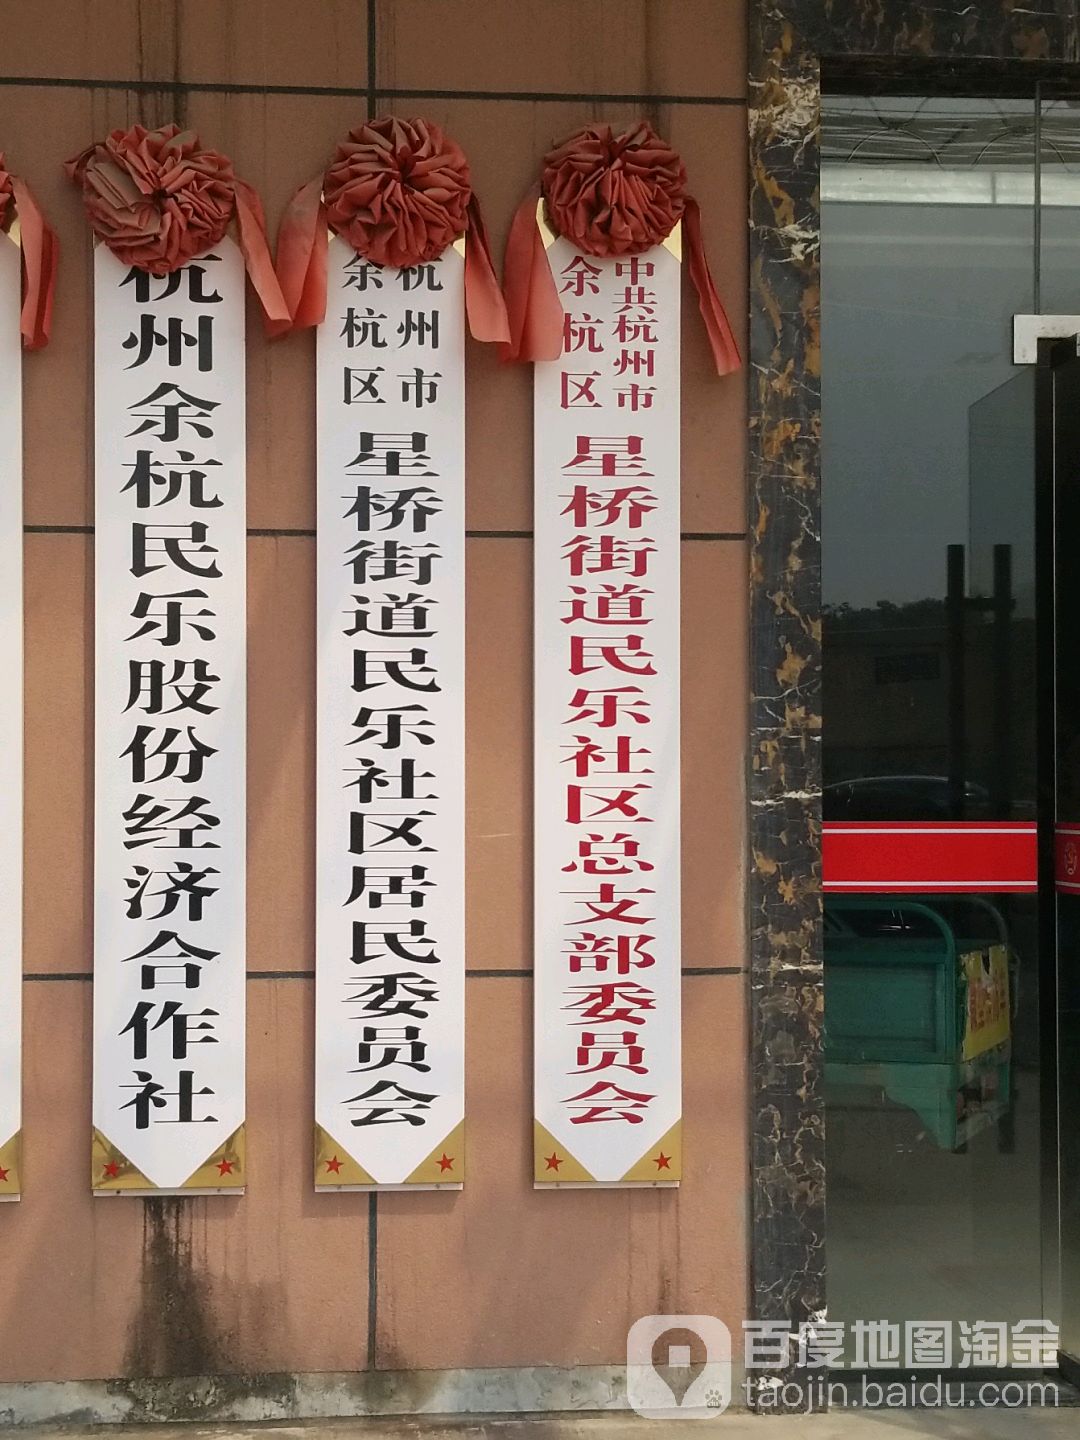 杭州余杭民乐股份经济合作社
杭州市
余杭区
星桥街道民乐社区居民委员会
中共杭州市
余杭区
星桥街道民乐社区总支部委员会
百度地图淘金
taojin.baidu.com